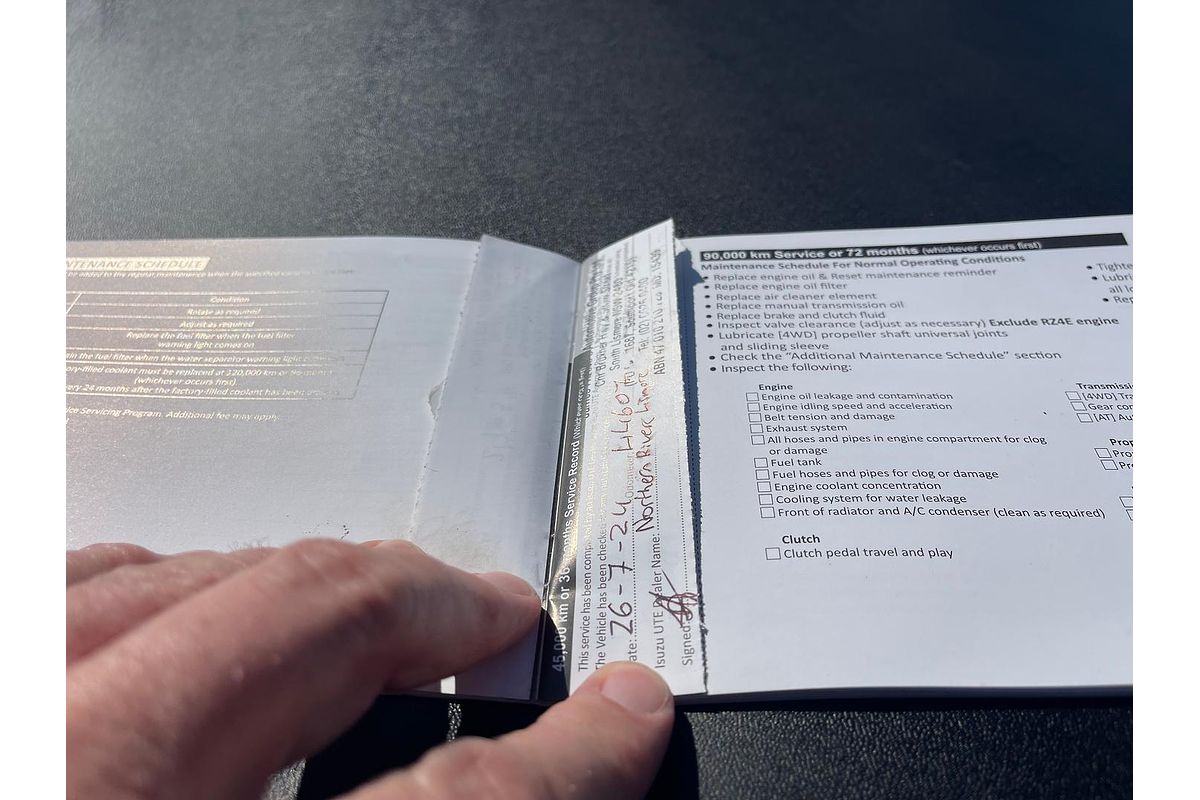 MAINTENANCE SCHEDULE
be added to the regular maintenance when the specified
Condition
Rotate as required
Adjust as required
Replace the fuel filter when the fuel filter
warning light comes on
the fuel filter when the water separator warning light
factory-filled coolant must be replaced at 120,000 km or
(whichever occurs first)
every 24 months after the factory-filled coolant has been
Servicing Program. Additional fee may apply.
45,000 km or 36 months Service Record (whichever occurs first)
This service has been completed by
The Vehicle has been checked
Date: 26-7-24 Odometer: 44607
Isuzu UTE Dealer Name: Northern River Limore
Signed:
90,000 km Service or 72 months (whichever occurs first)
Maintenance Schedule For Normal Operating Conditions
• Replace engine oil & Reset maintenance reminder
• Replace engine oil filter
• Replace air cleaner element
• Replace manual transmission oil
• Replace brake and clutch fluid
• Inspect valve clearance (adjust as necessary) Exclude RZ4E engine
• Lubricate [4WD] propeller shaft universal joints
and sliding sleeve
• Check the "Additional Maintenance Schedule" section
• Inspect the following:
Engine
Engine oil leakage and contamination
Engine idling speed and acceleration
Belt tension and damage
Exhaust system
All hoses and pipes in engine compartment for clog
or damage
Fuel tank
Fuel hoses and pipes for clog or damage
Engine coolant concentration
Cooling system for water leakage
Front of radiator and A/C condenser (clean as required)
Clutch
Clutch pedal travel and play
• Tighte
• Lubri
all lo
• Rep
Transmissi
[4WD] Tra
Gear con
[AT] Au
Prop
Pro
Pr